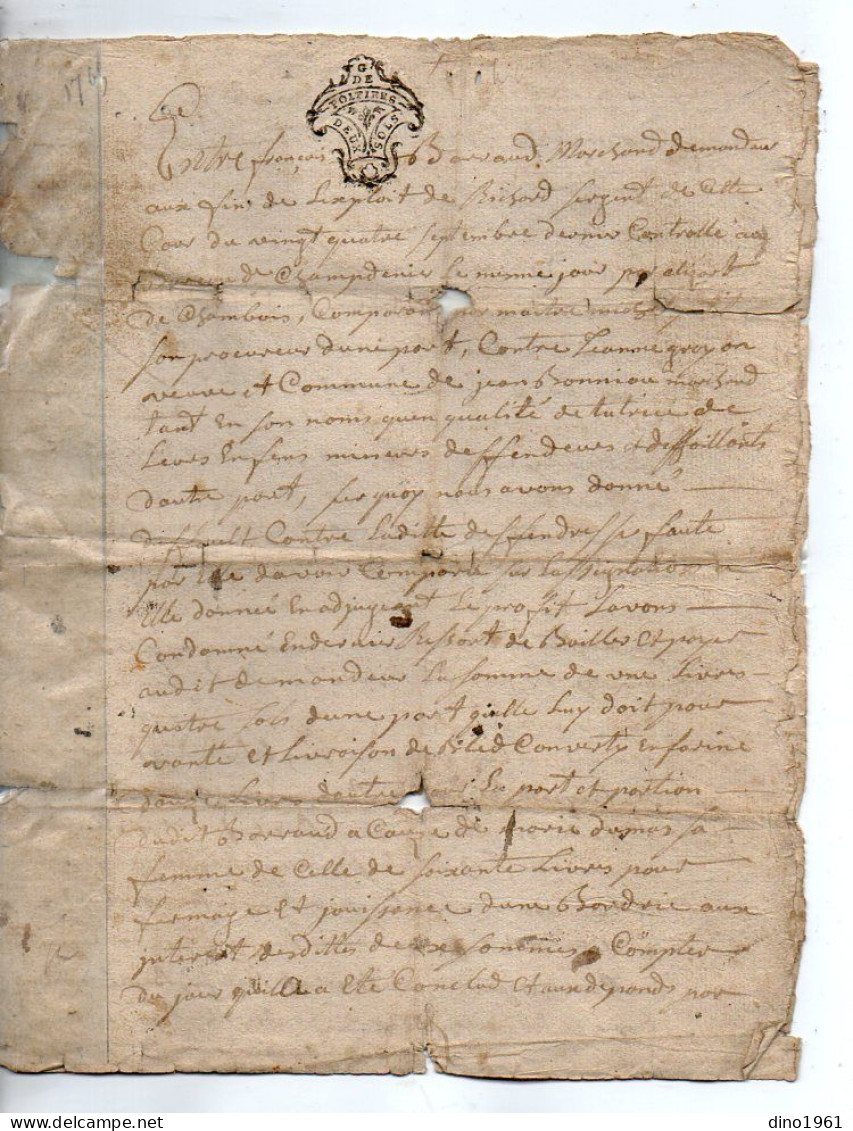 G
DE
POITIERS
DEUX SOLS
Entre françois Barraud Marchand demandeur
aux fins de Lexploit de Richard sergent de Cette
Cour du vingt quatre septembre dernier Controllé au
de Champdenier le mesme jour par
de Chambois, Comparant par maitre
son procureur dune part, Contre Jeanne
veuve et Commune de jean Bonniou marchand
tant En son noms quen qualité de tutrice de
Leurs Enfens mineurs deffenderes et deffaillants
dautre part, surquoy nous avons donné
deffault Contre Laditte deffendresse faute
par Elle davoir Comparu sur Lassignation a
Elle donnée En adjugeant Le profit Lavons
Condamné En dernier Ressort de Bailler et payer
audit demandeur La somme de une Livres
quatre sols dune part quelle Luy doit pour
vante et Livraison de Bled Converty En farine
douze Livres dautre pour La part et portion
dudit Barraud a Cause de marie dumas sa
femme de Celle de soixante Livres pour
fermage Et jouissence dune Bordrie aux
interest desdittes deux sommes a Compter
du jour quelle a Eté Conclud Et aux depands par
dino1961